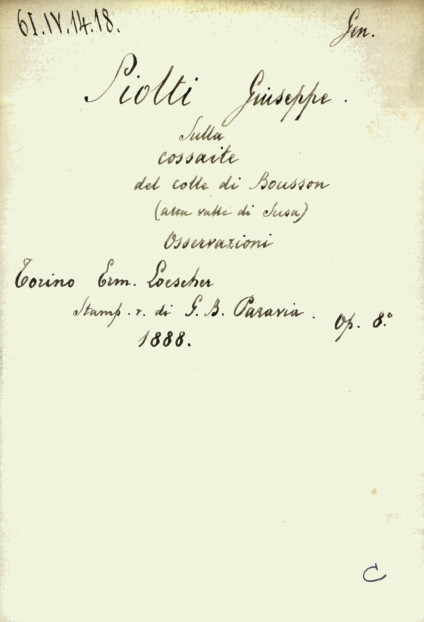 61.IV.14.18.
Gen.
Piolti Giuseppe.
Sulla
cossaite
del colle di Bousson
(alta valle di Susa)
Osservazioni
Torino Erm. Loescher
Stamp. r. di G. B. Paravia.
Op. 8.°
1888.
C